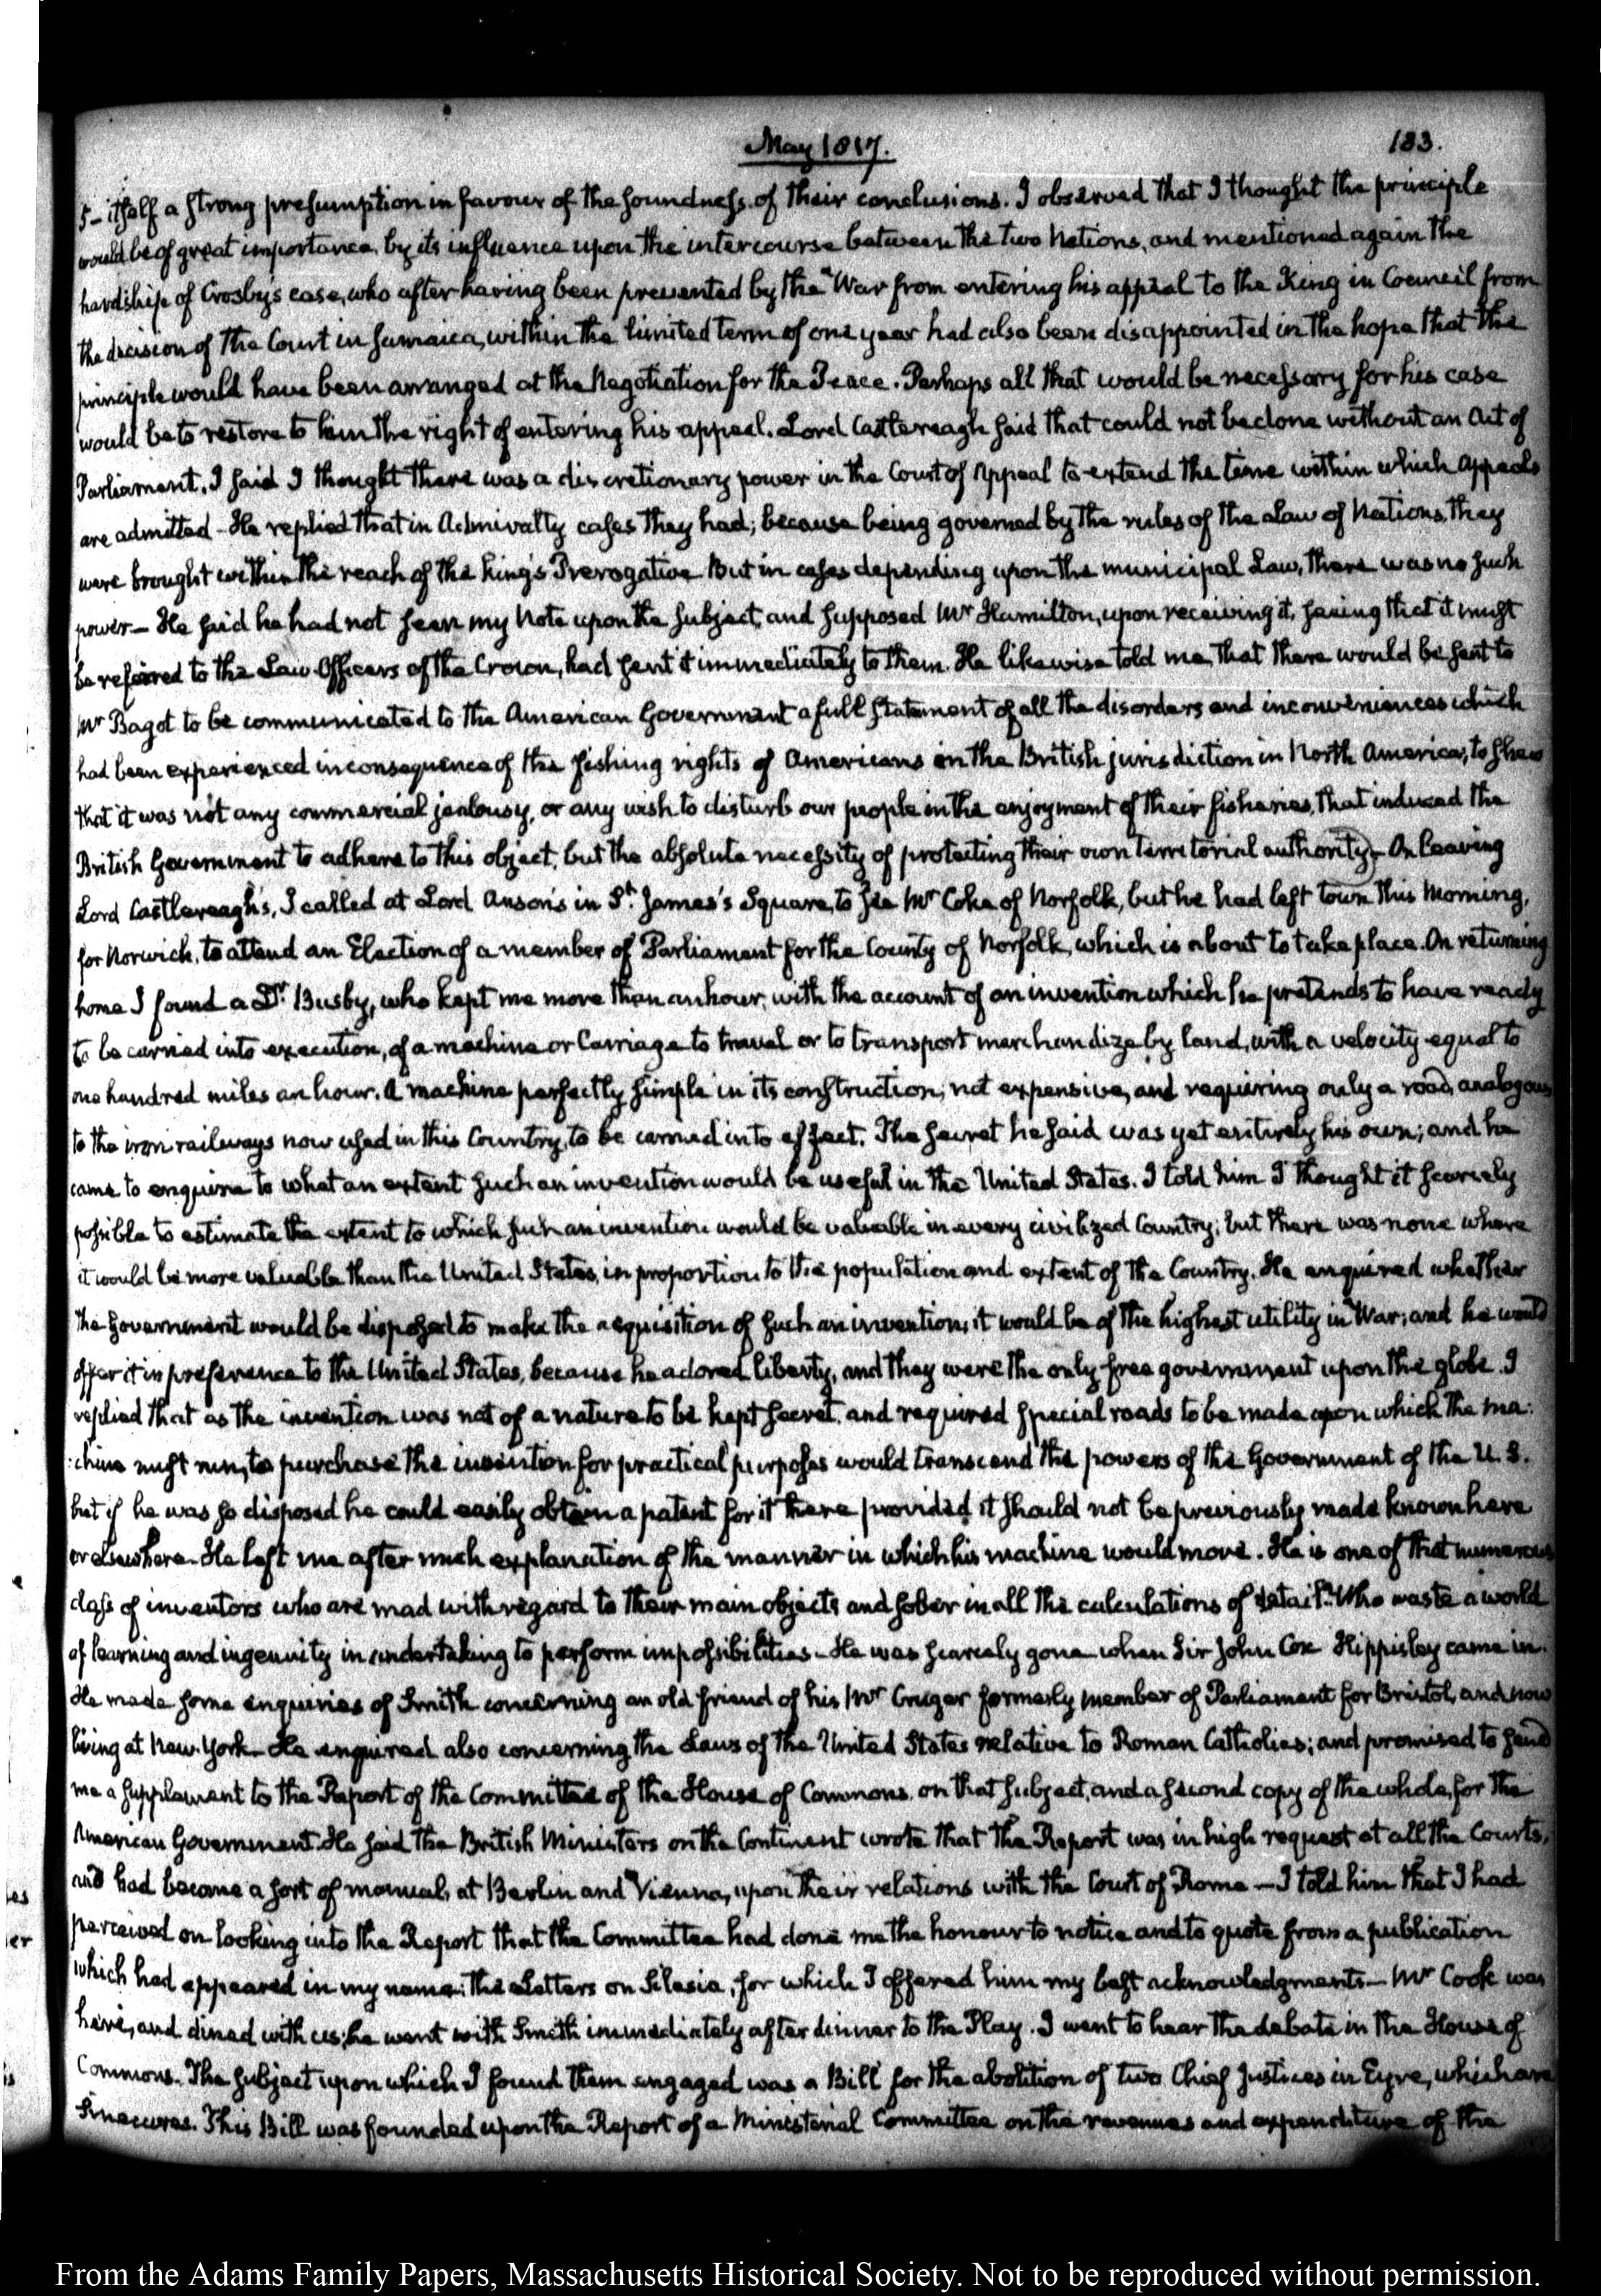 May 1817.
183.
5- itself a strong presumption in favour of the soundness of their conclusions. I observed that I thought the principle
would be of great importance, by its influence upon the intercourse between the two Nations, and mentioned again the
hardship of Crosby's case, who after having been prevented by the War from entering his appeal to the King in Council from
the decision of the Court in Jamaica, within the limited term of one year had also been disappointed in the hope that the
principle would have been arranged at the Negotiation for the Peace. Perhaps all that would be necessary for his case
would be to restore to him the right of entering his appeal. Lord Castlereagh said that could not be done without an Act of
Parliament. I said I thought there was a discretionary power in the Court of Appeal to extend the time within which Appeals
are admitted - He replied that in Admiralty cases they had; because being governed by the rules of the Law of Nations, they
were brought within the reach of the King's Prerogative But in cases depending upon the municipal Law, there was no such
power - He said he had not seen my Note upon the subject, and supposed Mr Hamilton, upon receiving it, seeing that it must
be referred to the Law Officers of the Crown, had sent it immediately to them. He likewise told me, that there would be sent to
Mr Bagot to be communicated to the American Government a full statement of all the disorders and inconveniences which
had been experienced in consequence of the fishing rights of Americans in the British jurisdiction in North America, to shew
that it was not any commercial jealousy, or any wish to disturb our people in the enjoyment of their fisheries, that induced the
British Government to adhere to this object, but the absolute necessity of protecting their own territorial authority - On leaving
Lord Castlereagh's, I called at Lord Anson's in St. James's Square, to see Mr Coke of Norfolk, but he had left town this Morning,
for Norwich, to attend an Election of a member of Parliament for the County of Norfolk, which is about to take place. On returning
home I found a Dr. Busby, who kept me more than an hour, with the account of an invention which he pretends to have ready
to be carried into execution, of a machine or Carriage to travel or to transport merchandize by land, with a velocity equal to
one hundred miles an hour. A machine perfectly simple in its construction, not expensive, and requiring only a road, analogous
to the iron railways now used in this Country, to be carried into effect. The secret he said was yet entirely his own; and he
came to enquire to what an extent such an invention would be useful in the United States. I told him I thought it scarcely
possible to estimate the extent to which such an invention would be valuable in every civilized Country; but there was none where
it would be more valuable than the United States, in proportion to the population and extent of the Country. He enquired whether
the Government would be disposed to make the acquisition of such an invention; it would be of the highest utility in War; and he would
offer it in preference to the United States, because he adored liberty, and they were the only free government upon the globe. I
replied that as the invention was not of a nature to be kept secret, and required special roads to be made upon which the ma:
:chine must run, to purchase the invention for practical purposes would transcend the powers of the Government of the U. S.
but if he was so disposed he could easily obtain a patent for it there provided it should not be previously made known here
or elsewhere - He left me after much explanation of the manner in which his machine would move. He is one of that numerous
class of inventors who are mad with regard to their main objects and sober in all the calculations of detail. Who waste a world
of learning and ingenuity in undertaking to perform impossibilities - He was scarcely gone when Sir John Cox Hippisley came in.
He made some enquiries of Smith concerning an old friend of his Mr Cruger formerly member of Parliament for Bristol, and now
living at New-York - He enquired also concerning the Laws of the United States relative to Roman Catholics; and promised to send
me a supplement to the Report of the Committee of the House of Commons, on that subject, and a second copy of the whole, for the
American Government. He said the British Ministers on the Continent wrote that the Report was in high request at all the Courts,
and had become a sort of manual, at Berlin and Vienna, upon their relations with the Court of Rome - I told him that I had
perceived on looking into the Report that the Committee had done me the honour to notice and to quote from a publication
which had appeared in my name: the Letters on Silesia, for which I offered him my best acknowledgments - Mr Cook was
here, and dined with us; he went with Smith immediately after dinner to the Play. I went to hear the debate in the House of
Commons. The subject upon which I found them engaged was a Bill for the abolition of two Chief Justices in Eyre, which are
Sinecures. This Bill was founded upon the Report of a Ministerial Committee on the revenues and expenditure of the
From the Adams Family Papers, Massachusetts Historical Society. Not to be reproduced without permission.